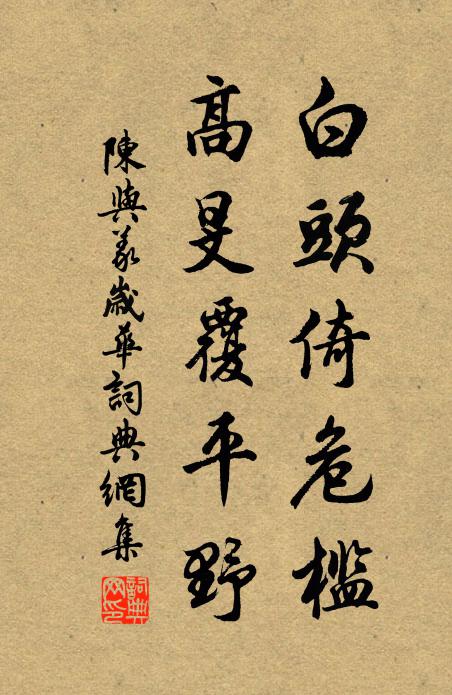 白頭倚危檻
高旻覆平野
陳與義歲華詞典網集
詞典網印